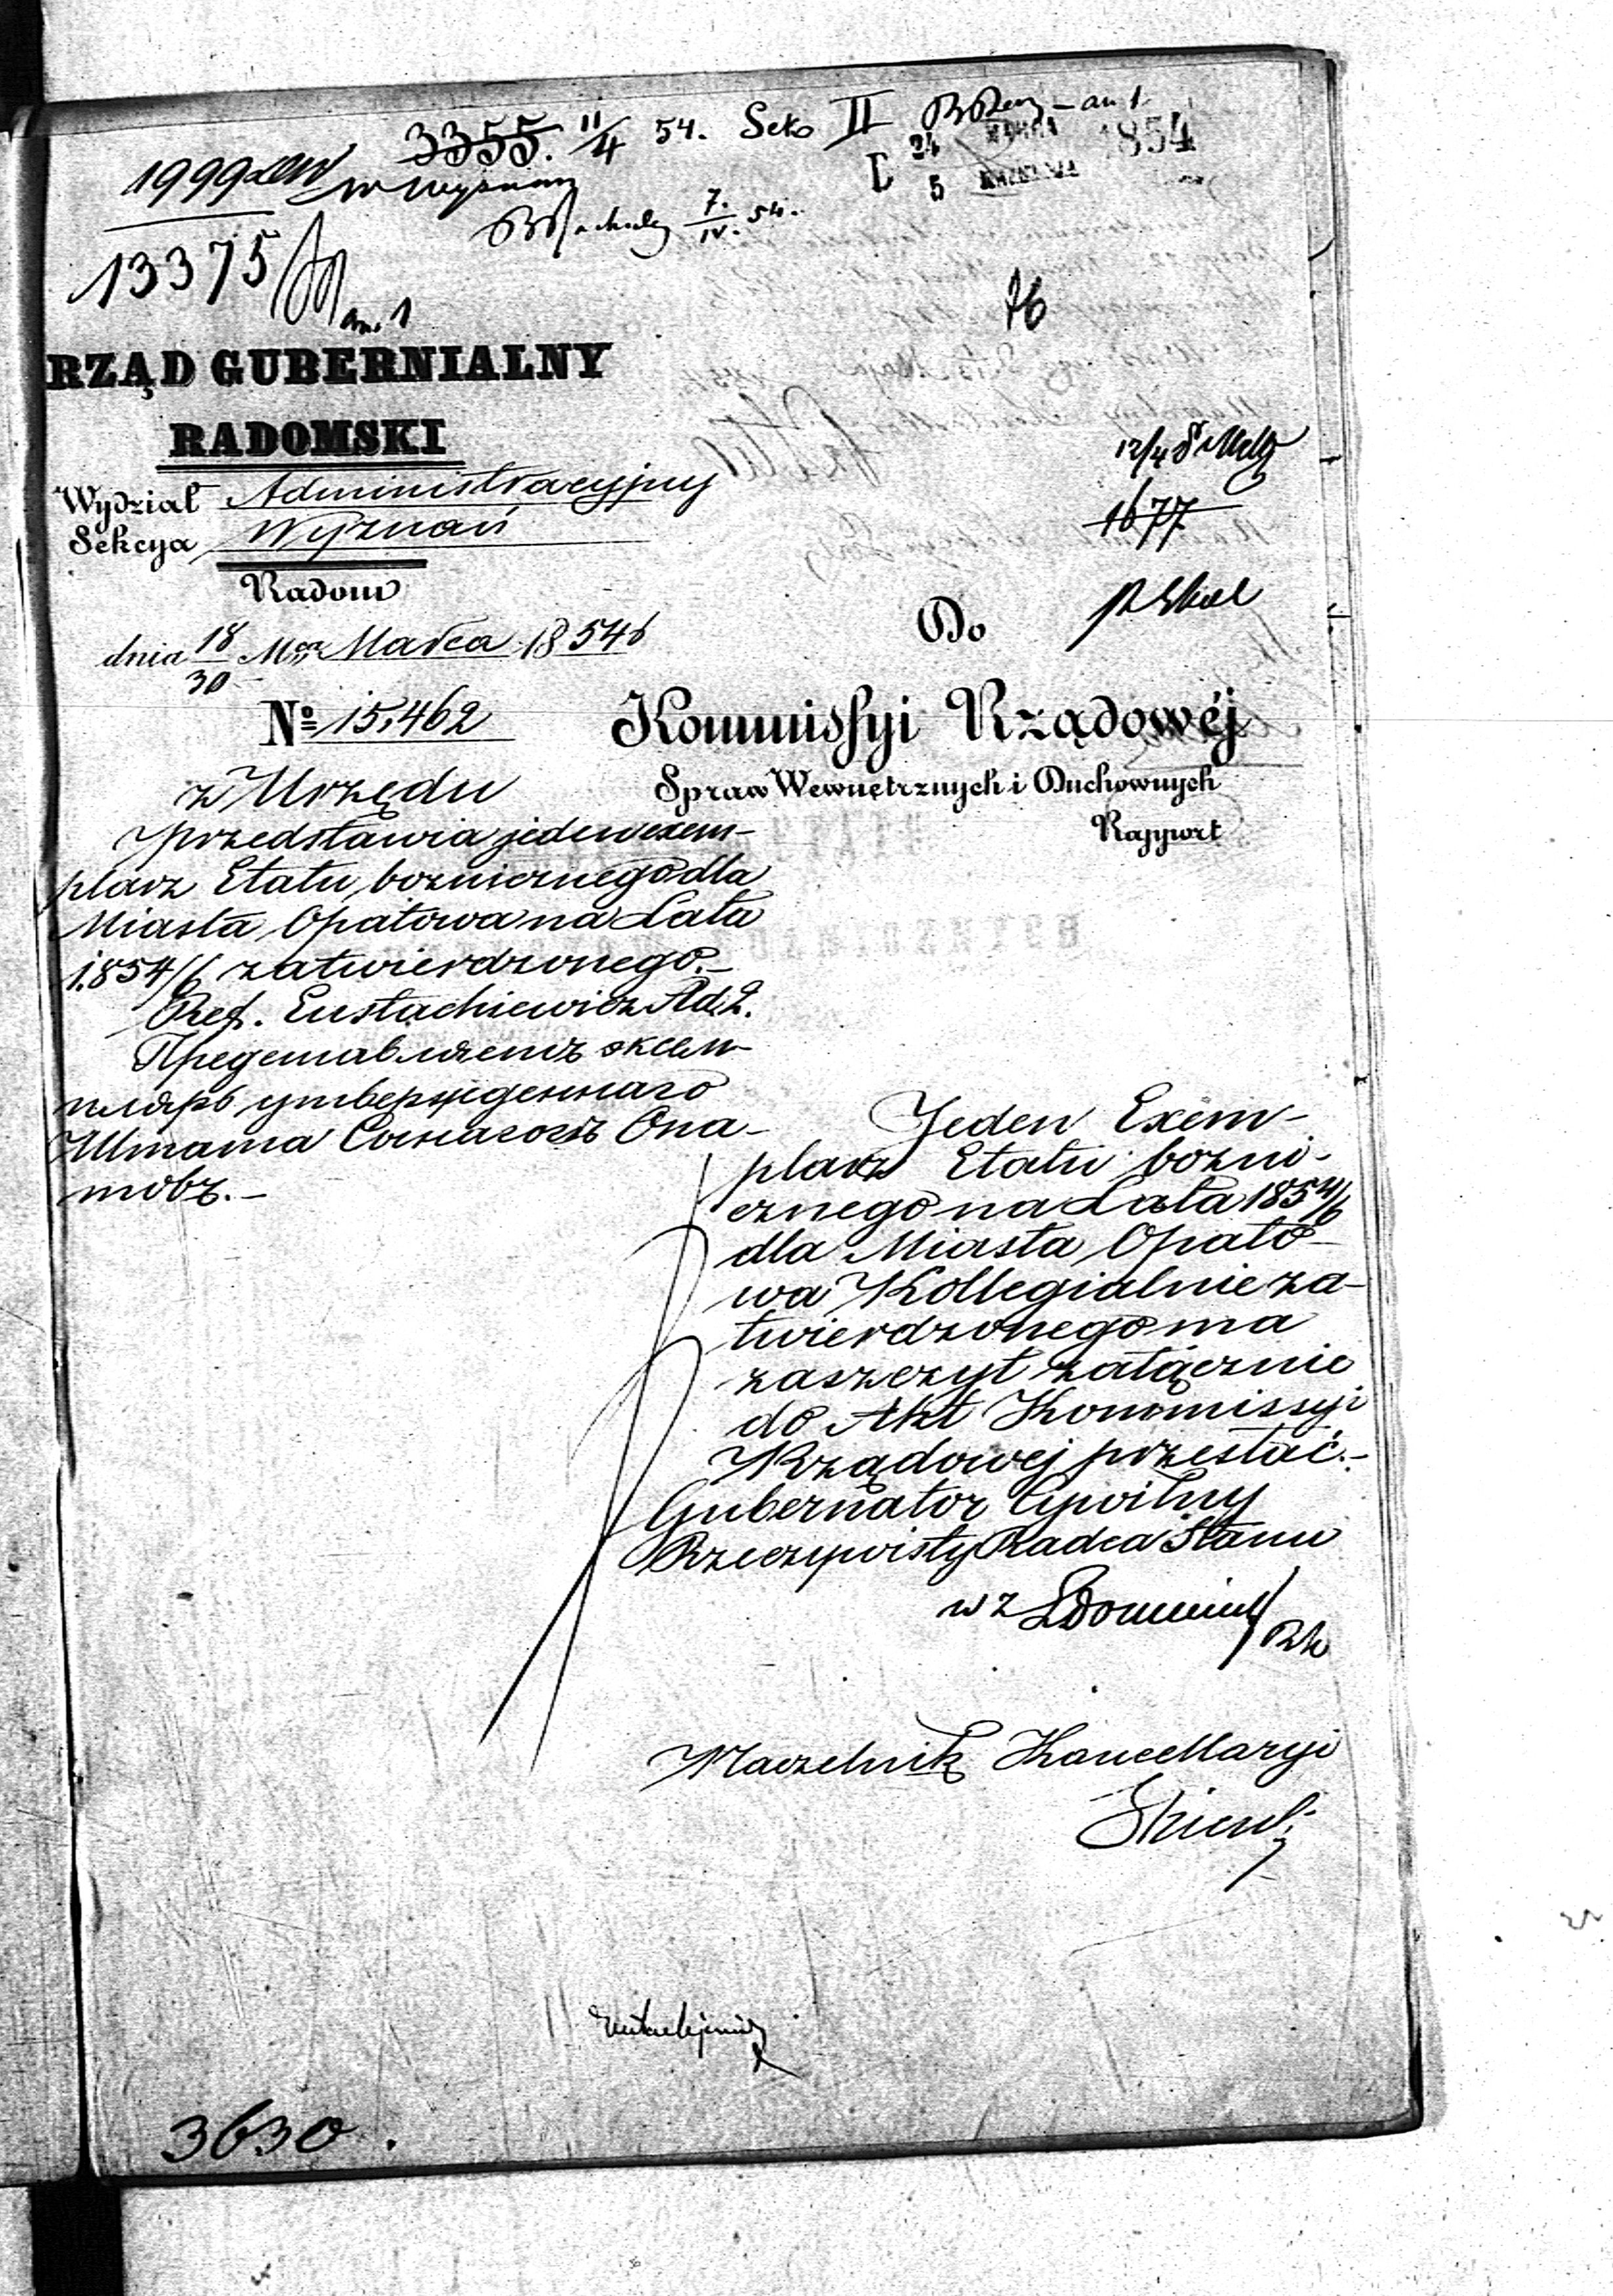 3355. 11/4 54. Sek II
24 MARCA 1854
5 KWIETNIA
1999
7./IV. 54.
13375
an. 1
76
RZĄD GUBERNIALNY
RADOMSKI
12/4
Wydział Administracyjny
Sekcya Wyznań
1677
Radom
Do
dnia 18/30 Marca 1854 r
Kommissyi Rządowéj
Nº 15,462
Spraw Wewnętrznych i Duchownych
Rapport
z Urzędu
przedstawia jeden exem-
plarz Etatu bożnicznego dla
Miasta Opatowa na Lata
1854/6 zatwierdzonego.-
Ref. Eustachiewicz Ad.
Представляетъ эксем-
пляръ утвержденнаго
Штата Синагогъ Опа-
товъ.-
Jeden Exem-
plarz Etatu bożni-
cznego na Lata 1854/6
dla Miasta Opato-
wa Kollegialnie za-
twierdzonego ma
zaszczyt załącznie
do Akt Kommissyi
Rządowej przesłać.-
Gubernator Cywilny
Rzeczywisty Radca Stanu
w z
Naczelnik Kancellaryi
3630.